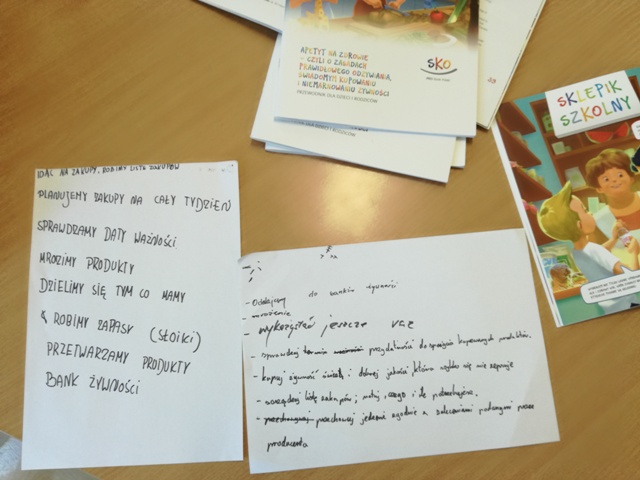 APETYT NA ZDROWIE
- CZYLI O ZASADACH
PRAWIDŁOWEGO ODŻYWIANIA,
ŚWIADOMYM KUPOWANIU
I NIEMARNOWANIU ŻYWNOŚCI
PRZEWODNIK DLA DZIECI I RODZICÓW
SKO
DLA DZIECI I RODZICÓW
SKLEPIK
SZKOLNY
IDĄC NA ZAKUPY, ROBIMY LISTĘ ZAKUPÓW
PLANUJEMY ZAKUPY NA CAŁY TYDZIEŃ
SPRAWDZAMY DATY WAŻNOŚCI
MROZIMY PRODUKTY
DZIELIMY SIĘ TYM CO MAMY
ROBIMY ZAPASY (SŁOIKI)
PRZETWARZAMY PRODUKTY
BANK ŻYWNOŚCI
- Oddajemy do banków żywności
- mrożenie
- wykorzystać jeszcze raz
- sprawdzaj przydatności do spożycia kupowanych produktów.
- kupuj żywność świeżą i dobrej jakości, która szybko się nie zepsuje
- sporządzaj listę zakupów; notuj, czego i ile potrzebujesz.
- przechowuj jedzenie zgodnie z zaleceniami podanymi przez
producenta